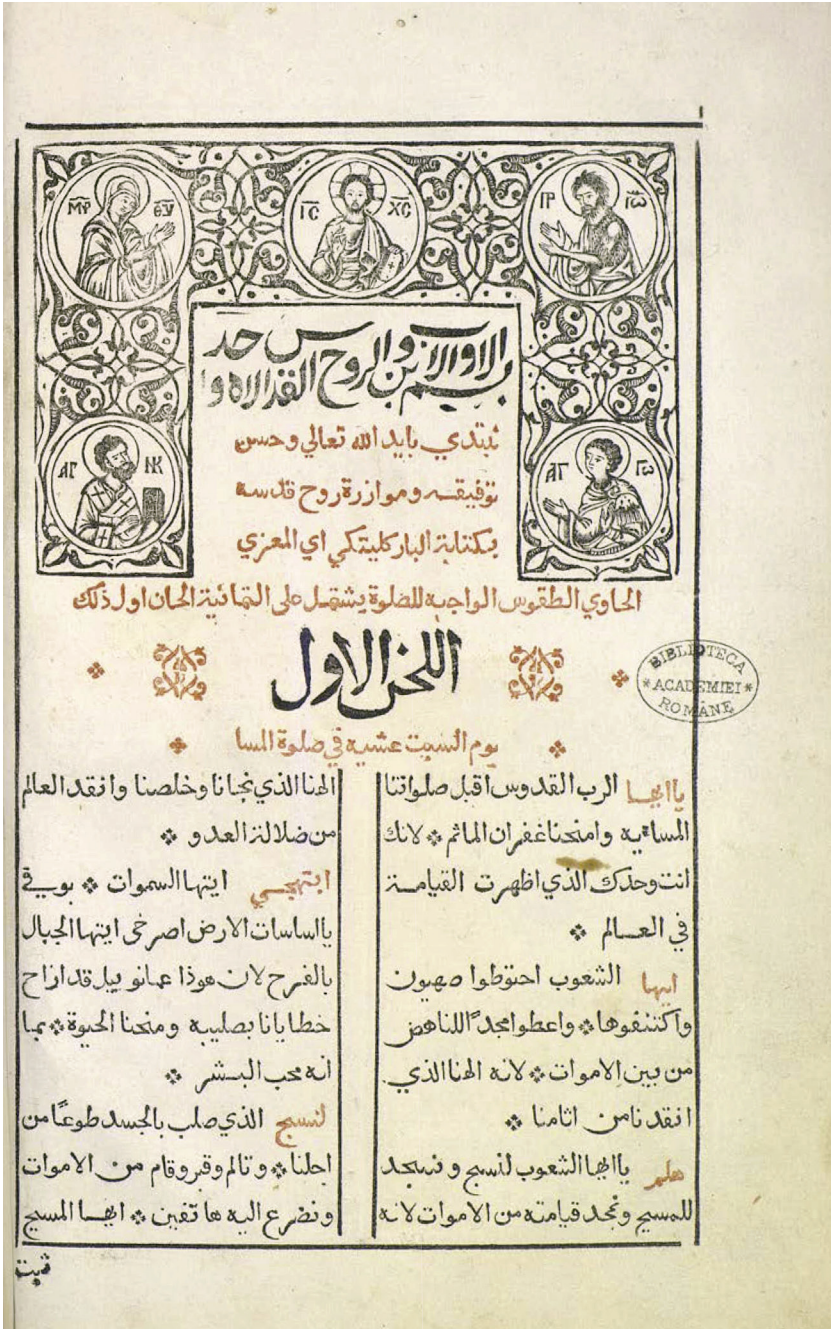 ١
ΜΡ ΘΥ
ΙС ΧС
ΠΡ ΙѠ
بسم الاب والابن والروح القدس الاه واحد
نبتدي بايد الله تعالي وحسن
ΑΓ ΝΚ
ΑΓ ΓѠ
توفيقه وموازرة روح قدسه
بكتابة الباركليتكي اي المعزي
الحاوي الطقوس الواجبه للصلوة يشتمل على الثمانية الحان اول ذلك
اللحن الاول
BIBLIOTECA
*ACADEMIEI*
ROMÂNE
يوم السبت عشيه في صلوة المسا
يا ايها الرب القدوس اقبل صلواتنا
المسائيه وامنحنا غفران الماثم لانك
انت وحدك الذي اظهرت القيامة
في العالم
ايها الشعوب احتوطوا صهيون
واكتنفوها واعطوا مجدًا للناهض
من بين الاموات لانه الهنا الذي
انقدنا من اثامنا
هلم يا ايها الشعوب لنسبح ونسجد
للمسيح ونمجد قيامته من الاموات لانه
الهنا الذي نجانا وخلصنا وانقد العالم
من ضلالة العدو
ابتهجي ايتها السموات بوقي
يا اساسات الارض اصرخي ايتها الجبال
بالفرح لان هوذا عمانوييل قد ازاح
خطايانا بصليبه ومنحنا الحيوة بما
انه محب البشر
لنسبح الذي صلب بالجسد طوعًا من
اجلنا وتالم وقبر وقام من الاموات
ونضرع اليه هاتفين ايها المسيح
ثبت